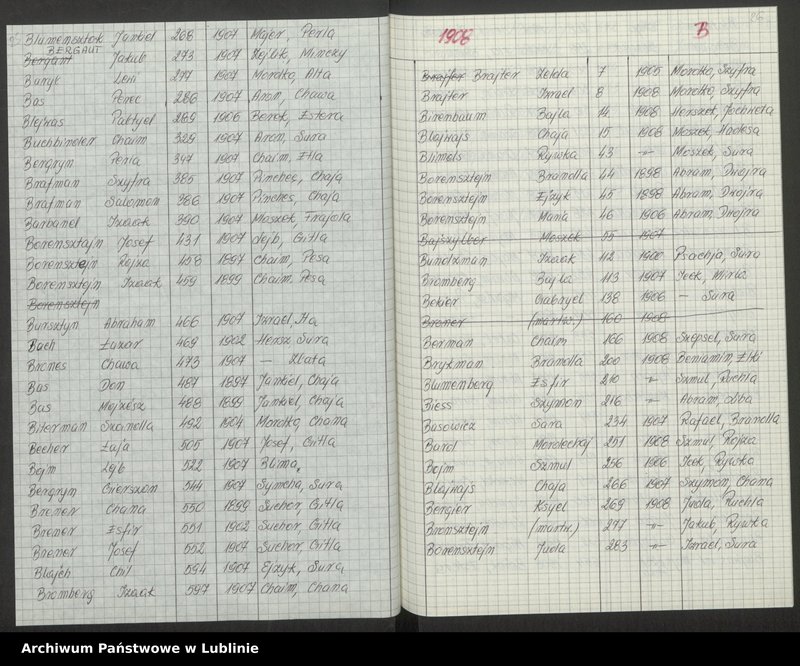 Blumensztok Jankel 268 1907 Majer, Perla
BERGAUT
Bergant Jakub 273 1907 Lejbik, Minczy
Buryk Leni 277 1907 Mordko, Alta
Bas Perec 286 1907 Aron, Chawa
Blejwas Paltyel 289 1906 Berek, Estera
Buchbinder Chaim 329 1907 Aron, Sura
Bergryn Penia 347 1907 Chaim, Etla
Brafman Szyfra 385 1907 Pinches, Chaja
Brafman Salomon 386 1907 Pinches, Chaja
Barbanel Izaak 390 1907 Moszek, Frajdla
Borensztajn Josef 431 1907 Lejb, Gitla
Borensztejn Rojza 458 1897 Chaim, Pesa
Borensztejn Izaak 459 1899 Chaim, Pesa
Borensztejn
Bursztyn Abraham 466 1907 Izrael, Ita
Bach Lazar 469 1902 Hersz Sura
Brones Chawa 473 1907 — Zlata
Bas Don 487 1897 Jankiel, Chaja
Bas Mojżesz 488 1899 Jankiel, Chaja
Biterman Szandla 492 1904 Mordko, Chana
Becher Łaja 505 1907 Josef, Gitla
Bojm Lejb 522 1907 Blima,
Bergryn Gierszon 544 1907 Symcha, Sura
Bremer Chana 550 1899 Suchor, Gitla
Bremer Esfir 551 1902 Suchor, Gitla
Bremer Josef 552 1907 Suchor, Gitla
Blajch Chil 594 1907 Ejzyk, Sura
Bromberg Izaak 597 1907 Chaim, Chana
1908 B
Brajter Zelda 7 1905 Mordko, Szyfra
Brajter Izrael 8 1908 Mordko, Szyfra
Birenbaum Bajla 14 1908 Herszek, Jochweta
Blajwajs Chaja 15 1908 Moszek, Hadesa
Blimels Rywka 43 -"- Moszek, Sura
Borensztejn Brandla 44 1898 Abram, Dwojra
Borensztejn Ejzyk 45 1898 Abram, Dwojra
Borensztejn Maria 46 1906 Abram, Dwojra
Bajszylber Moszek 55 1907
Bundzman Izaak 112 1900 Psachja, Sura
Bromberg Bajla 113 1907 Icek, Mirla
Bekier Gabryel 138 1906 — Sura
Broner (martw.) 160 1908
Berman Chaim 166 1908 Szepsel, Sura
Brykman Brandla 200 1908 Beniamin, Elki
Blumenberg Esfir 210 -"- Szmul, Ruchla
Biess Szymon 216 -"- Abram, Uba
Basowicz Sara 234 1907 Rafael, Brandla
Bard Mordechaj 251 1908 Szmul, Rojza
Bojm Szmul 256 1906 Icek, Rywka
Blajwajs Chaja 266 1907 Szymon, Chana
Bergier Ksyel 269 1908 Juda, Ruchla
Bronsztejn (martw.) 277 -"- Jakub, Rywka
Borensztejn Juda 283 -"- Izrael, Sura
Archiwum Państwowe w Lublinie